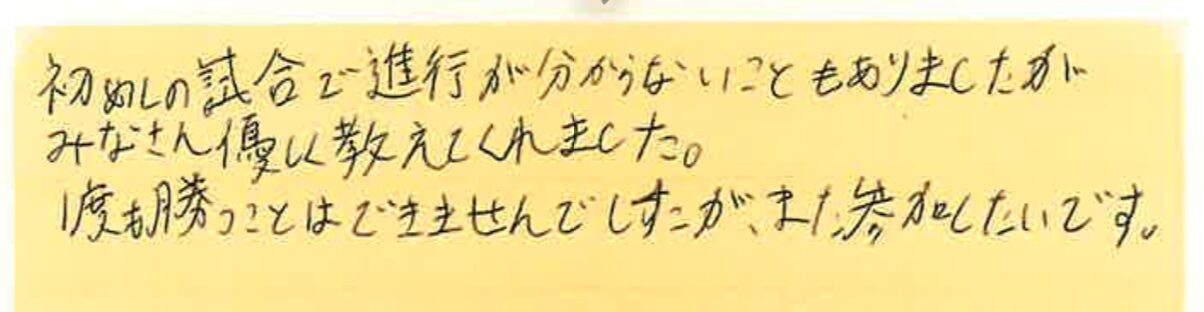 初めての試合で進行が分からないこともありましたが
みなさん優しく教えてくれました。
1度も勝つことはできませんでしたが、また参加したいです。